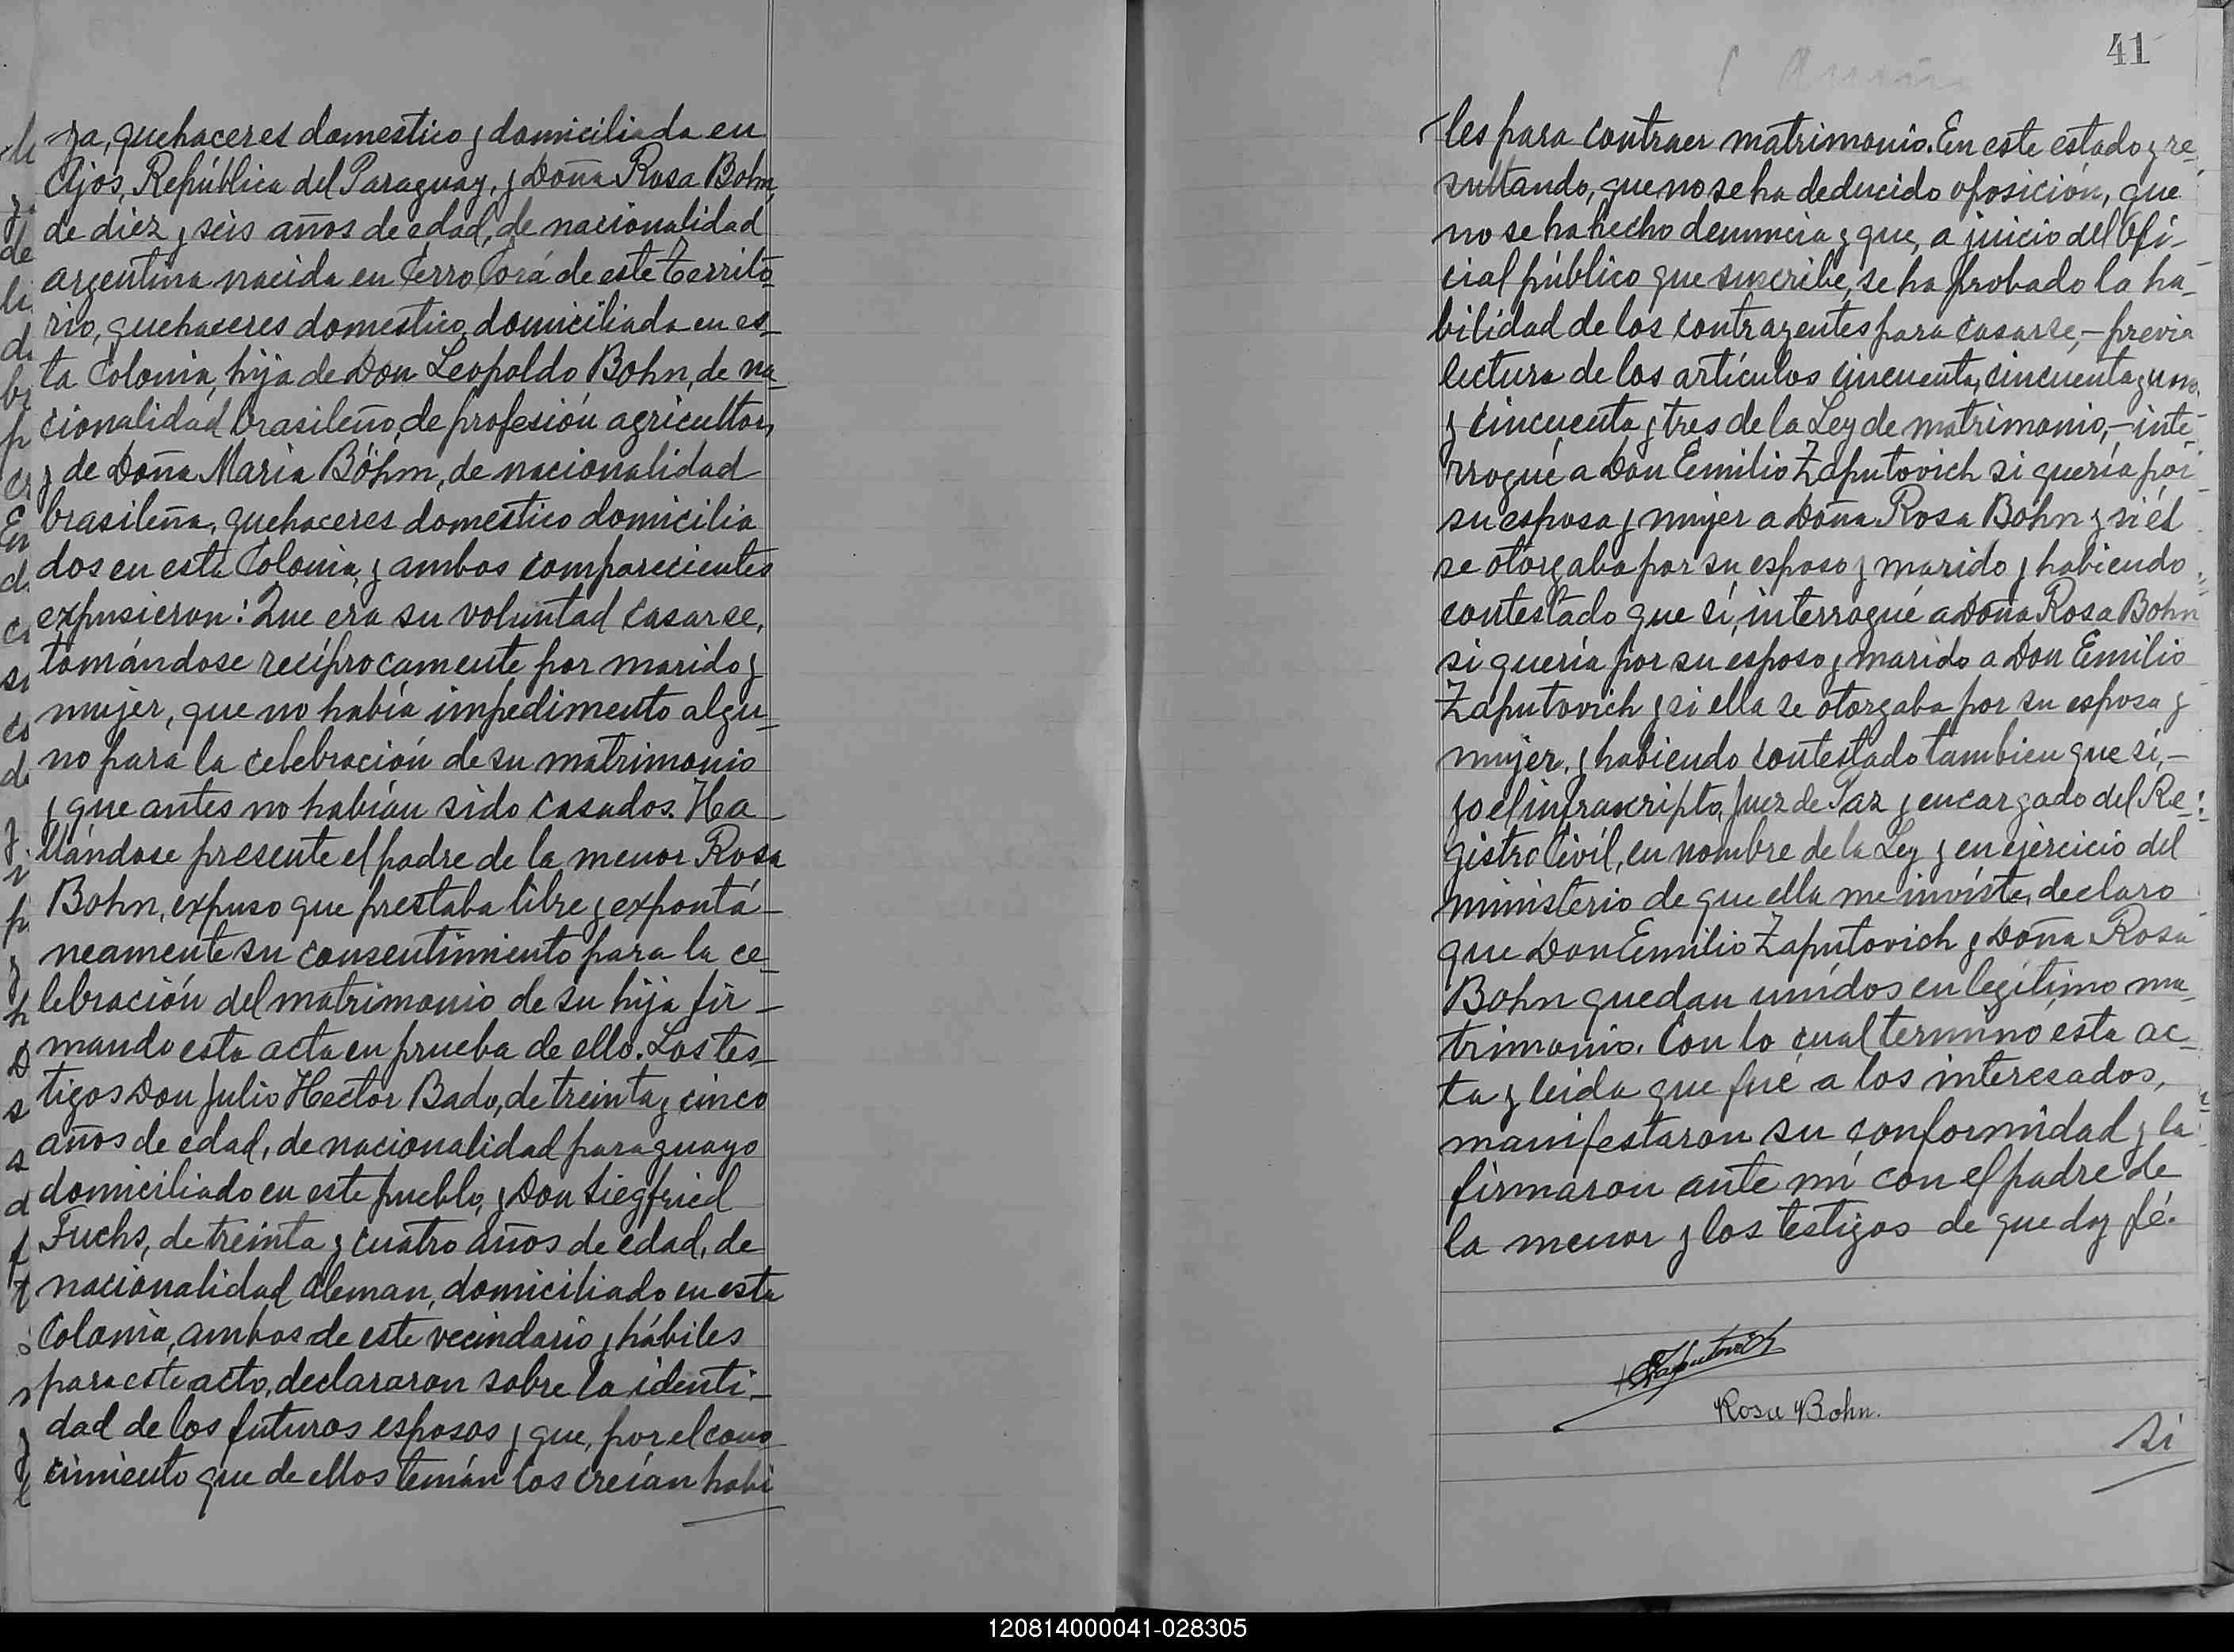 ya, quehaceres domestico y domiciliada en
Ajos, República del Paraguay, y Doña Rosa Bohn,
de diez y seis años de edad, de nacionalidad
argentina nacida en Cerro Corá de este Territo_
rio, quehaceres domestico, domiciliada en es_
ta Colonia, hija de Don Leopoldo Bohn, de na_
cionalidad brasileño, de profesión agricultor,
y de Doña Maria Böhm, de nacionalidad
brasileña, quehaceres domestico domicilia
dos en esta Colonia, y ambos comparecientes
expusieron: Que era su voluntad casarse,
tomándose recíprocamente por marido y
mujer, que no había impedimento algu_
no para la celebración de su matrimonio
y que antes no habían sido casados. Ha_
llándose presente el padre de la menor Rosa
Bohn, expuso que prestaba libre y expontá_
neamente su consentimiento para la ce_
lebración del matrimonio de su hija fir_
mando esta acta en prueba de ello. Los tes_
tigos Don Julio Hector Bado, de treinta y cinco
años de edad, de nacionalidad paraguayo
domiciliado en este pueblo, y Don Siegfried
Fuchs, de treinta y cuatro años de edad, de
nacionalidad aleman, domiciliado en esta
Colonia, ambos de este vecindario y hábiles
para este acto, declararon sobre la identi_
dad de los futuros esposos y que, por el cono
cimiento que de ellos tenían los creían habi
41
les para contraer matrimonio. En este estado y re_
sultando, que no se ha deducido oposición, que
no se ha hecho denuncia y que, a juicio del Ofi_
cial público que suscribe, se ha probado la ha_
bilidad de los contrayentes para casarse,- previa
lectura de los artículos cincuenta, cincuenta y uno
y cincuenta y tres de la Ley de matrimonio,- inte_
rrogué a Don Emilio Zaputovich si quería por
su esposa y mujer a Doña Rosa Bohn y si él
se otorgaba por su esposo y marido y habiendo
contestado que sí, interrogué a Doña Rosa Bohn
si quería por su esposo y marido a Don Emilio
Zaputovich y si ella se otorgaba por su esposa y
mujer, y habiendo contestado tambien que sí,-
yo el infrascripto, Juez de Paz y encargado del Re_
gistro Civil, en nombre de la Ley y en ejercicio del
ministerio de que ella me inviste, declaro
que Don Emilio Zaputovich y Doña Rosa
Bohn quedan unidos en legítimo ma_
trimonio. Con lo cual terminó esta ac_
ta y leida que fué a los interesados,
manifestaron su conformidad y la
firmaron ante mí con el padre de
la menor y los testigos de que doy fé.
Zaputovich
Rosa Bohn.
Si
120814000041-028305